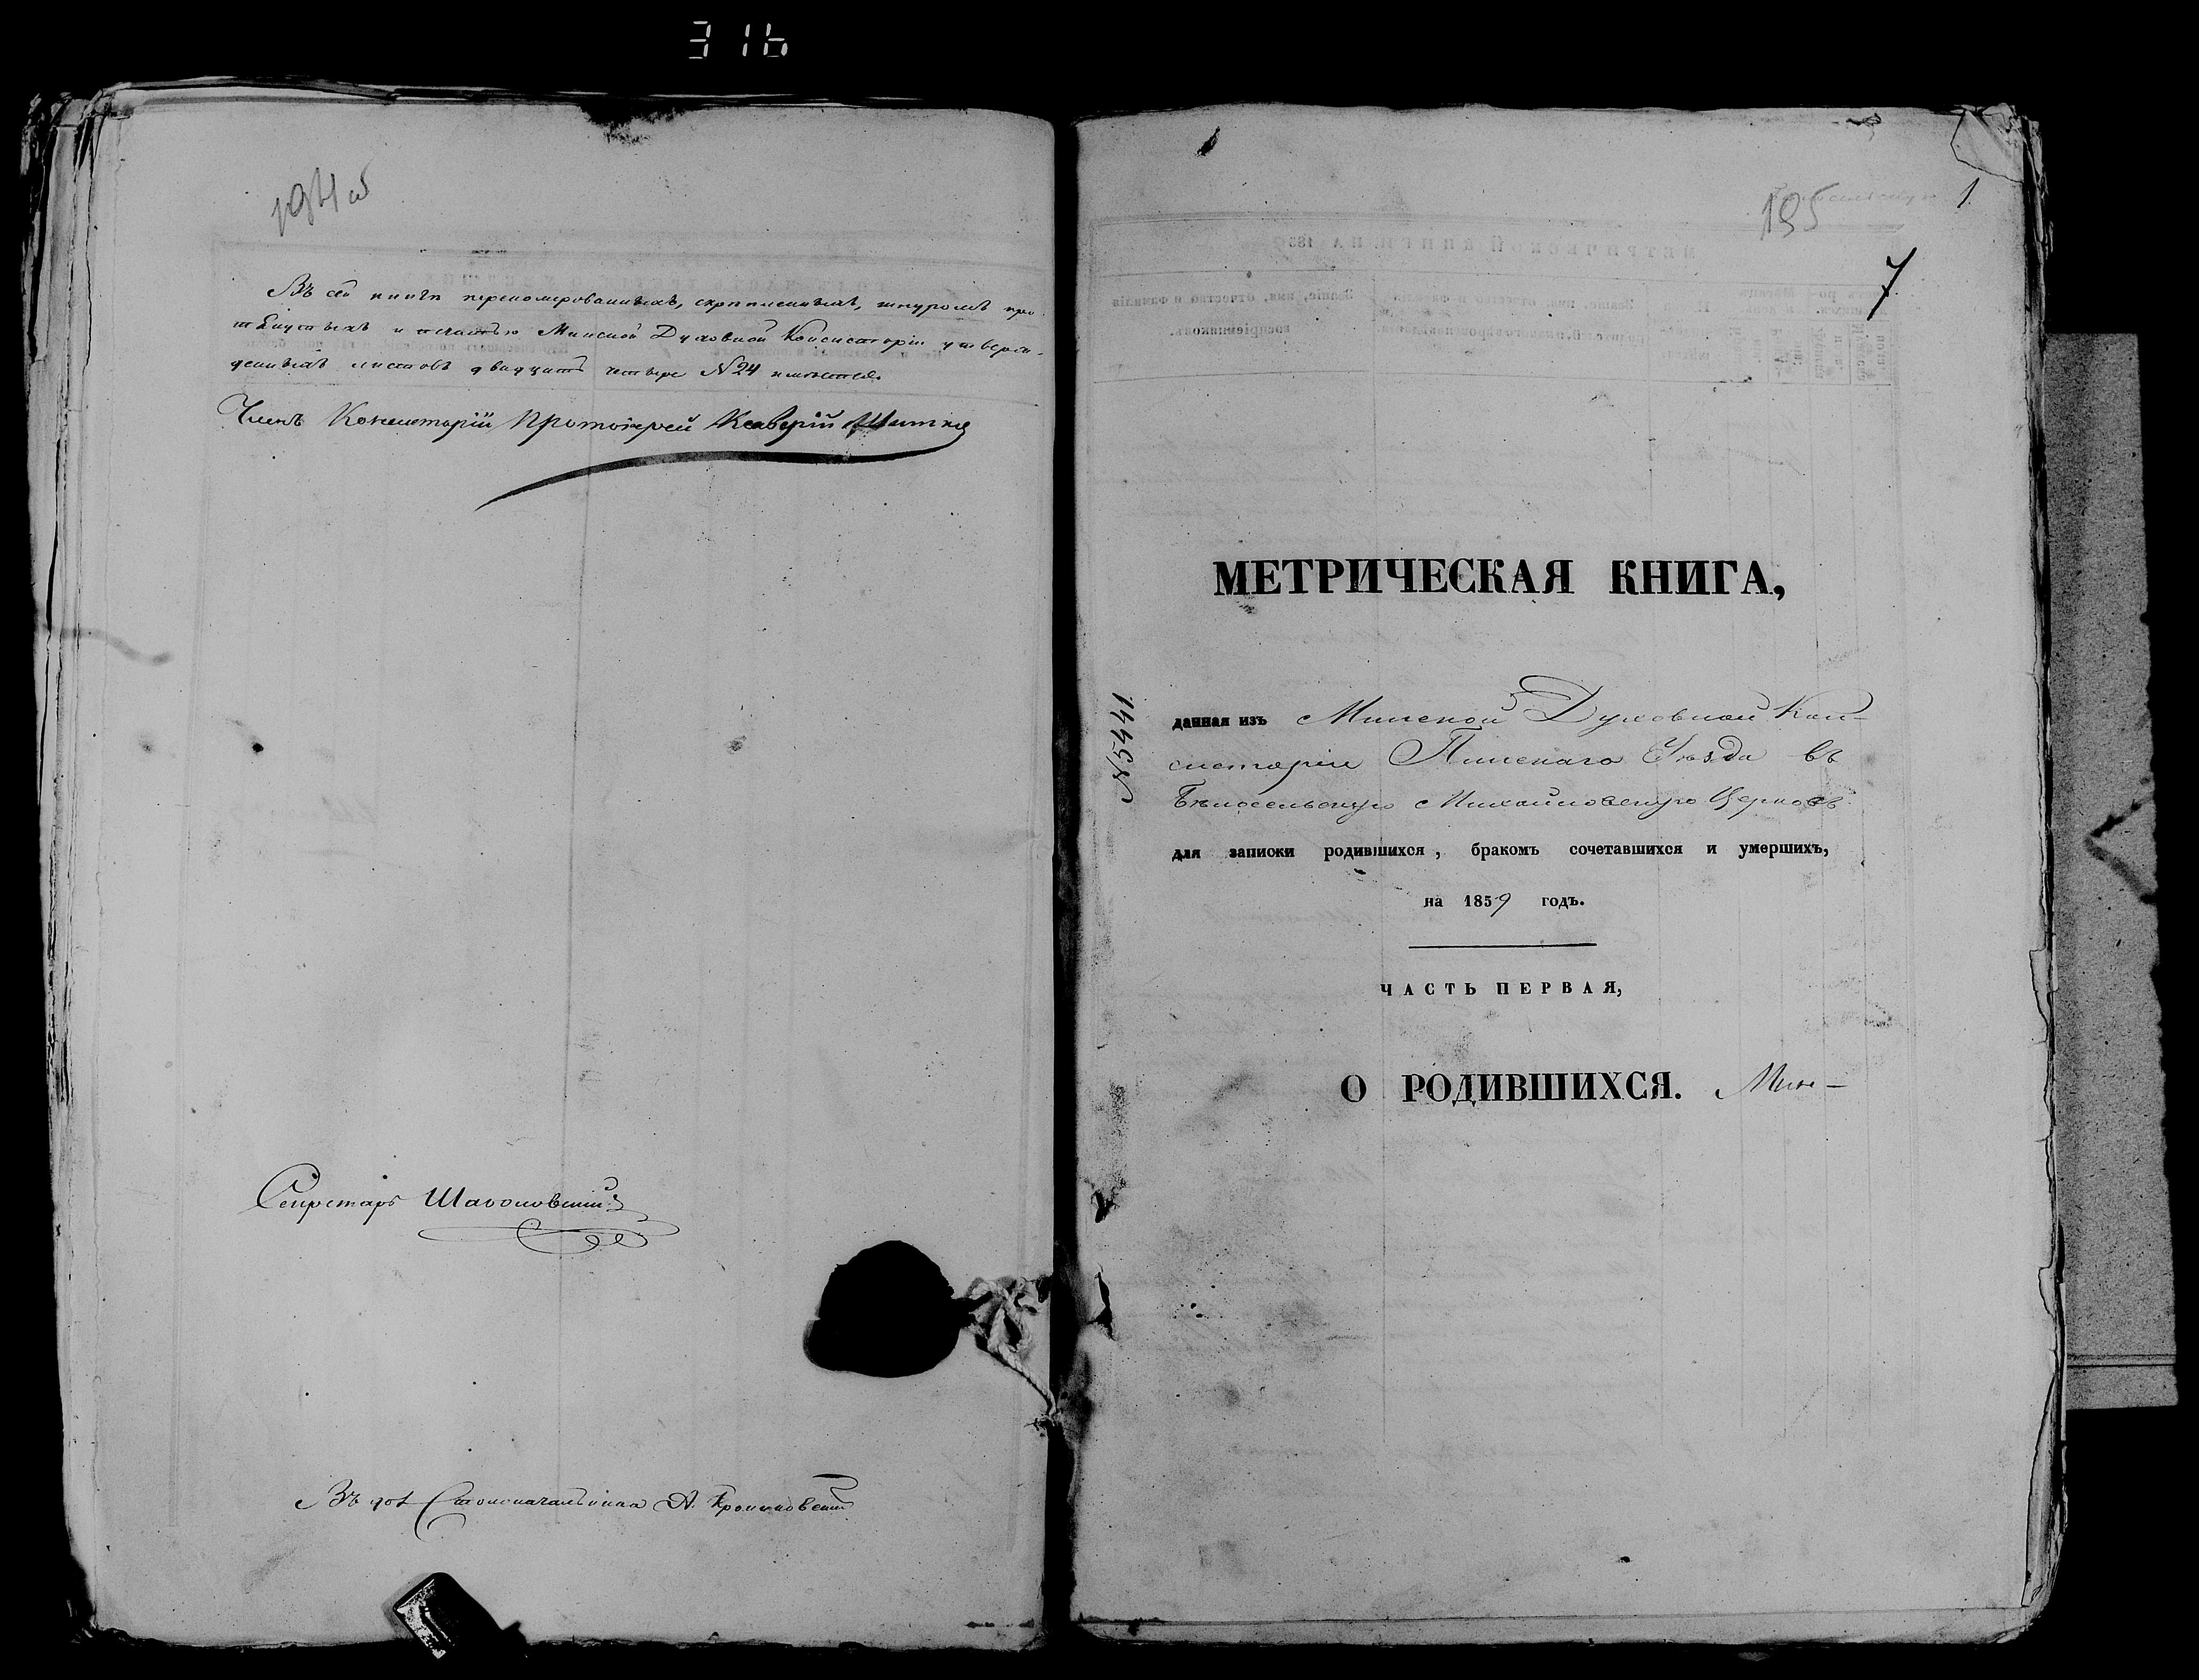 316
194 об
Въ сей книгѣ переномерованныхъ, скрѣпленныхъ, шнуромъ про-
тянутыхъ и печатью Минской Духовной Консисторіи утверж-
денныхъ листовъ двадцать четыре N 24 имѣется.
Членъ Консисторіи Протоіерей
Секретарь
Въ дол. Столоначальника А.
195
1
7
МЕТРИЧЕСКАЯ КНИГА,
N 5441.
данная изъ Минской Духовной Кон-
систоріи Пинскаго Уѣзда въ
Бѣлосельскую Михайловскую Церковь
для записки родившихся, бракомъ сочетавшихся и умершихъ,
на 1859 годъ.
ЧАСТЬ ПЕРВАЯ,
О РОДИВШИХСЯ.